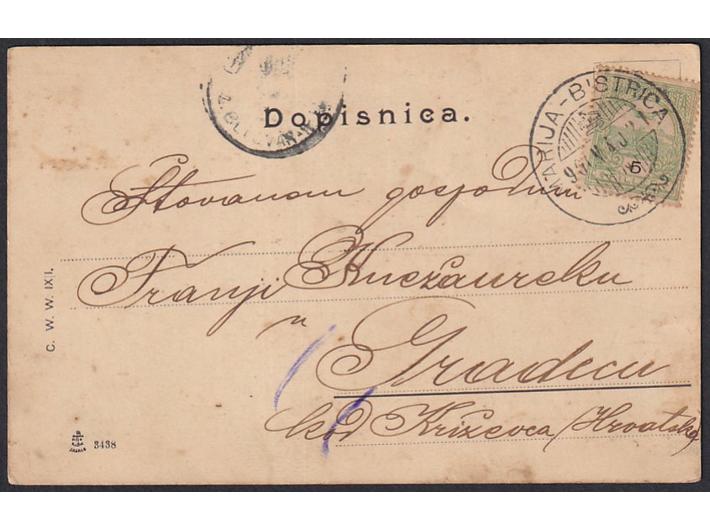 Dopisnica.
MARIJA-BISTRICA
5
Štovanom gospodinu
Franji Knežaureku
u
Gradecu
kod Križevca (Hrvatska)
C. W. W. IX I.
3438